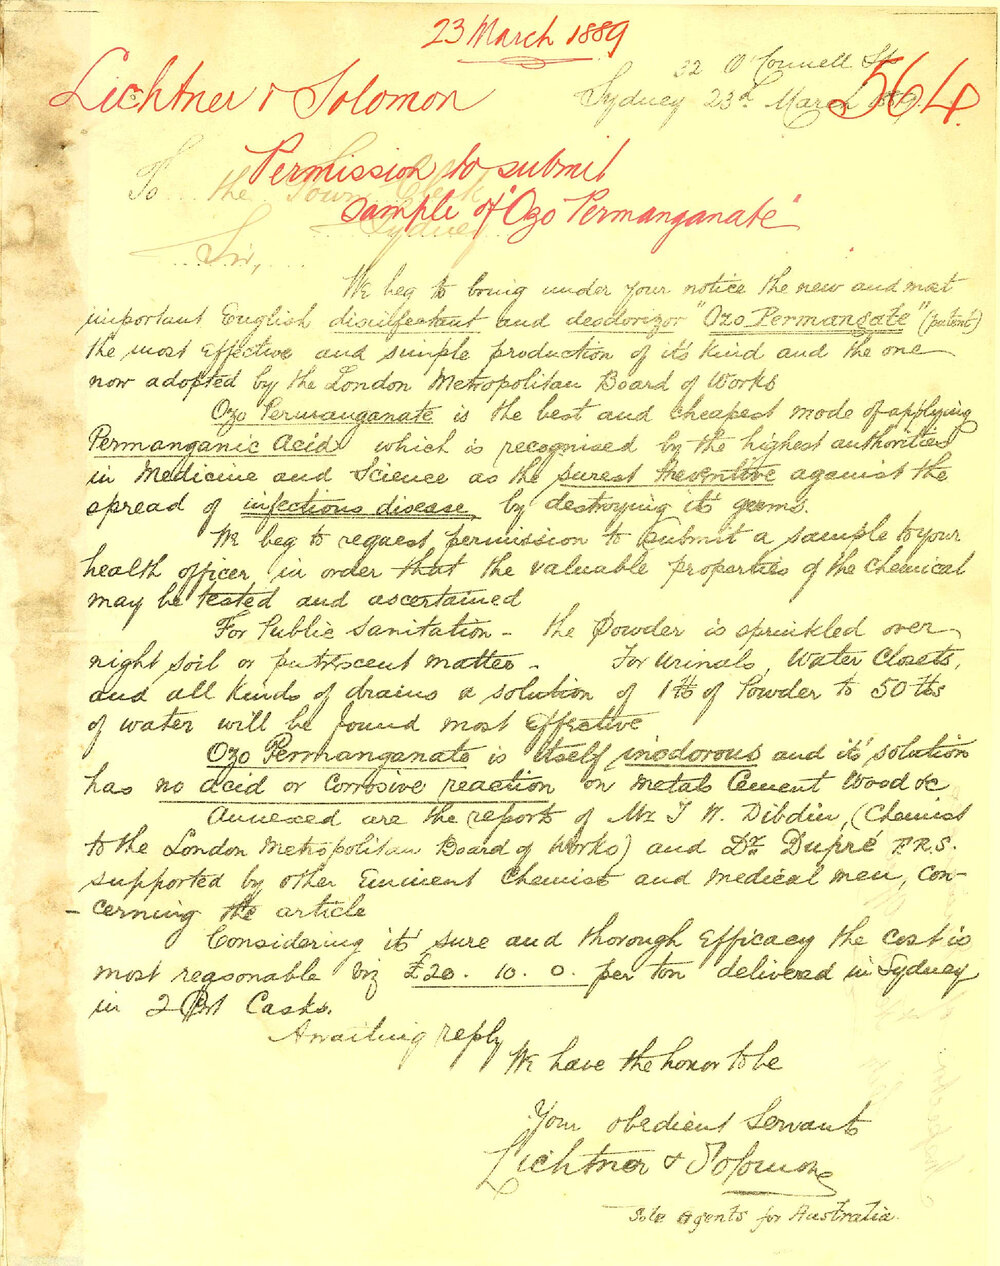 23 March 1889
32 O'Connell St
Lichtner & Solomon
564.
Sydney 23rd March 1889.
Permission to submit
To the Town Clerk
sample of "Ozo Permanganate"
Sydney
Sir,
We beg to bring under your notice the new and most
important English disinfectant and deodorizor "Ozo Permangate" (patent)
the most Effective and simple production of it's kind and the one
now adopted by the London Metropolitan Board of Works
Ozo Permanganate is the best and cheapest mode of applying
Permanganic Acid which is recognised by the highest authorities
in Medicine and Science as the surest preventive against the
spread of infectious disease, by destroying it's germs.
We beg to request permission to submit a sample to your
health officer, in order that the valuable properties of the Chemical
may be tested and ascertained
For Public Sanitation - the Powder is sprinkled over
night soil or putrescent matter - For Urinals, Water Closets,
and all kinds of drains a solution of 1 lb of Powder to 50 lbs
of water will be found most Effective
Ozo Permanganate is itself inodorous and it's solution
has no acid or corrosive reaction on Metals Cement Wood &c
Annexed are the reports of Mr T W. Dibdin, (Chemist
to the London Metropolitan Board of Works) and Dr. Dupré F.R.S.
supported by other Eminent Chemists and medical men, con-
- cerning the article
Considering it's sure and thorough Efficacy the cost is
most reasonable viz £20. 10. 0. per ton delivered in Sydney
in 2 Cwt Casks.
Awaiting reply
We have the honor to be
Your obedient Servants
Lichtner & Solomon
Sole Agents for Australia.